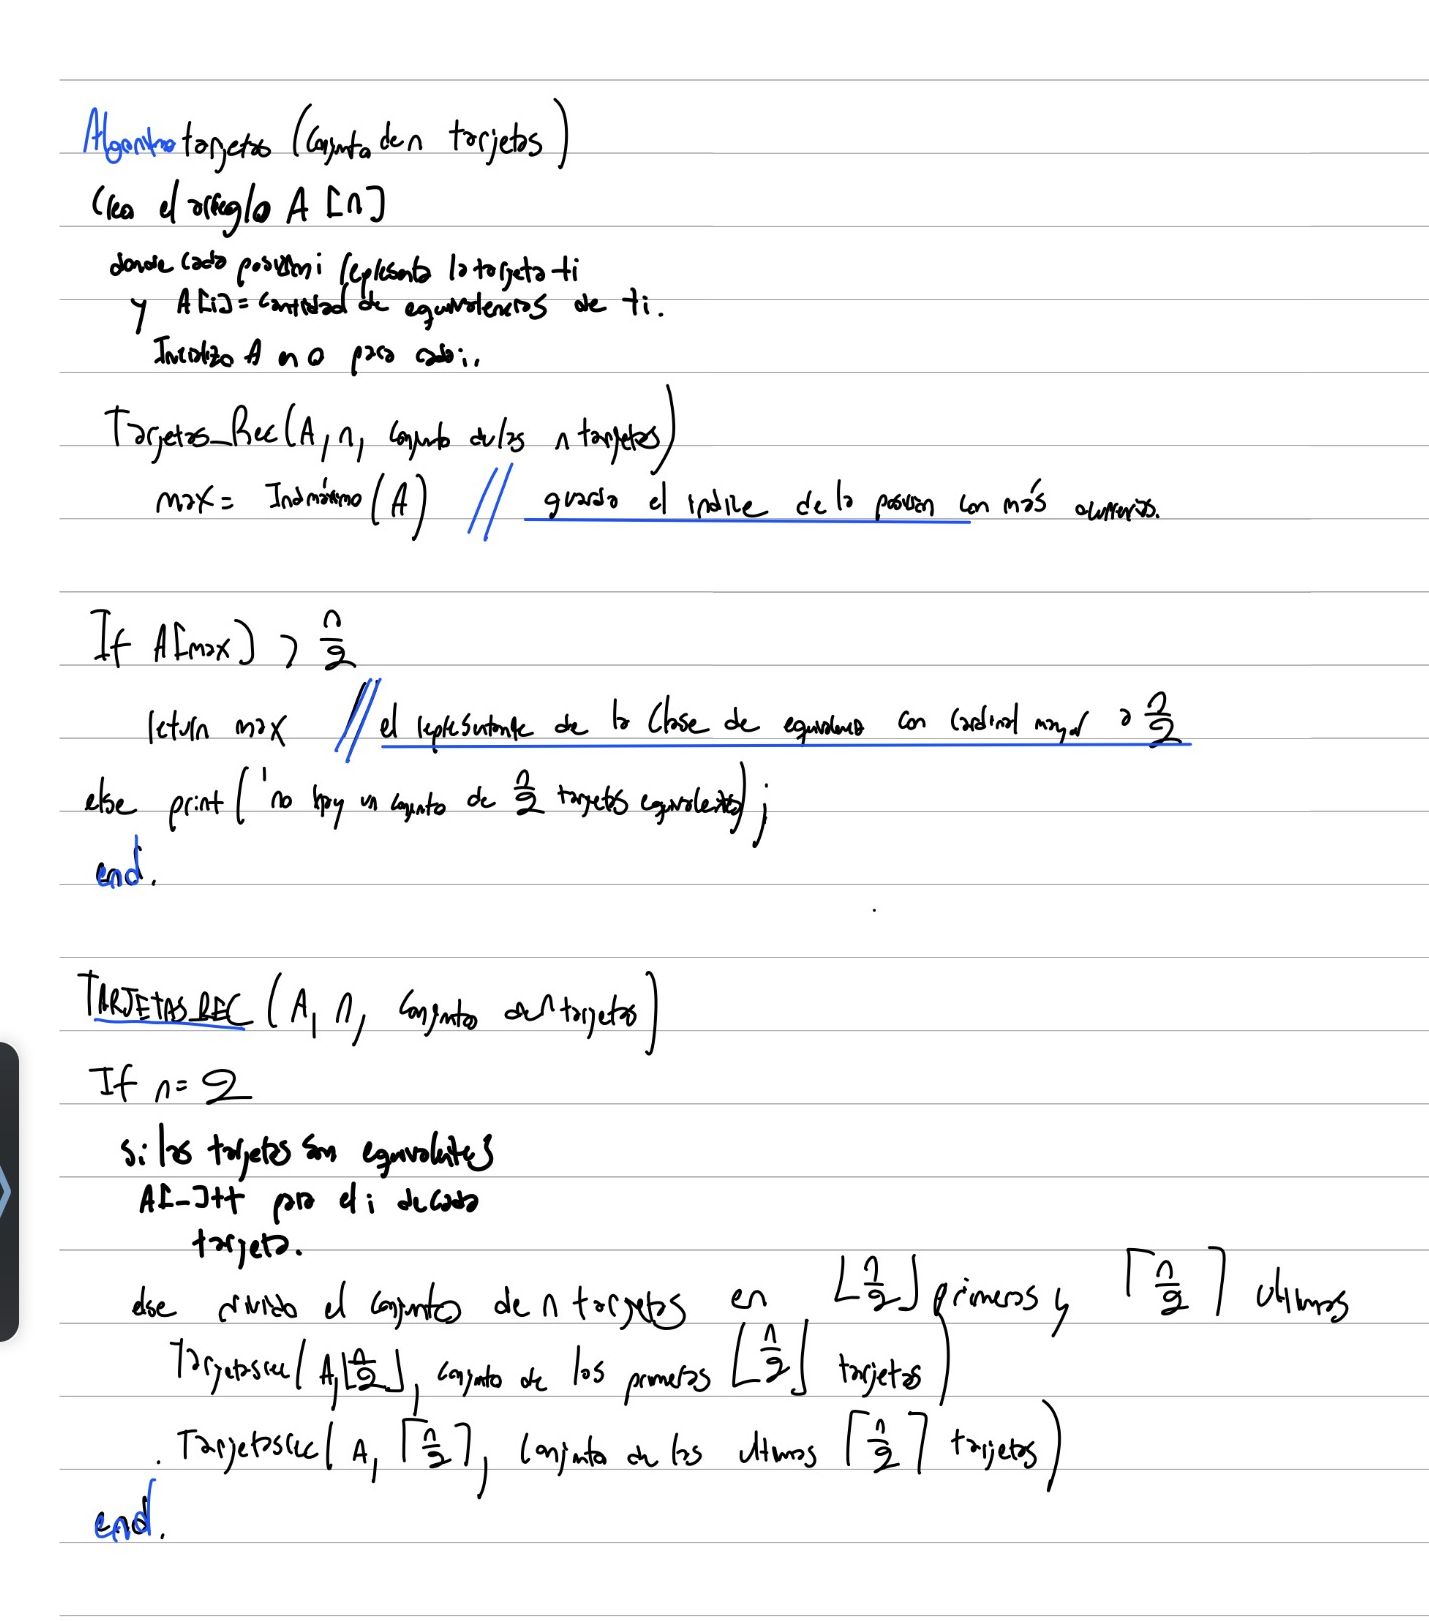 Algoritmo tarjetas (Conjunto de n tarjetas)
Crea el arreglo A [n]
donde cada posición i representa la tarjeta ti
y A[i] = cantidad de equivalencias de ti.
Inicializo A en 0 para cada i.
Tarjetas_Rec (A, n, conjunto de las n tarjetas)
max = Indmáximo (A) // guardo el indice de la posición con más ocurrencias.
If A[max] > n/2
return max // el representante de la Clase de equivalencia con Cardinal mayor a n/2
else print ('no hay un conjunto de n/2 tarjetas equivalentes);
end.
TARJETAS_REC (A, n, Conjunto de n tarjetas)
If n = 2
si las tarjetas son equivalentes
A[_]++ para el i de cada
tarjeta.
else divido el conjunto de n tarjetas en ⌊n/2⌋ primeros y ⌈n/2⌉ ultimos
Tarjetasrec (A, ⌊n/2⌋, conjunto de los primeros ⌊n/2⌋ tarjetas)
Tarjetasrec (A, ⌈n/2⌉, conjunto de las ultimos ⌈n/2⌉ tarjetas)
end.